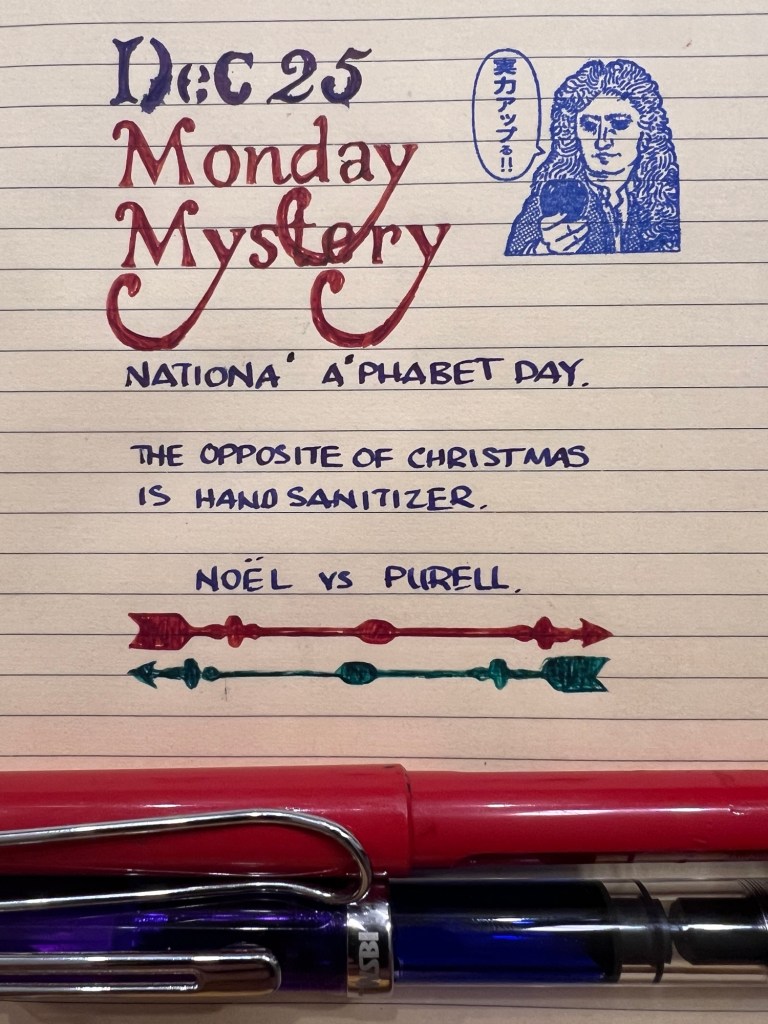 Dec 25
Monday
Mystery
実力アップる!!
NATIONA' A'PHABET DAY.
THE OPPOSITE OF CHRISTMAS
IS HAND SANITIZER.
NOËL VS PURELL.